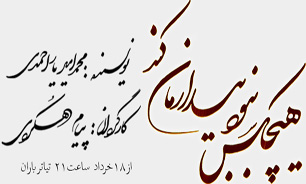 هیچکس نبود بیدارمان کند
نویسنده: محمدامیر یاراحمدی
کارگردان: پیام دهکردی
از ۱۸ خرداد ساعت ۲۱ تیاتر باران